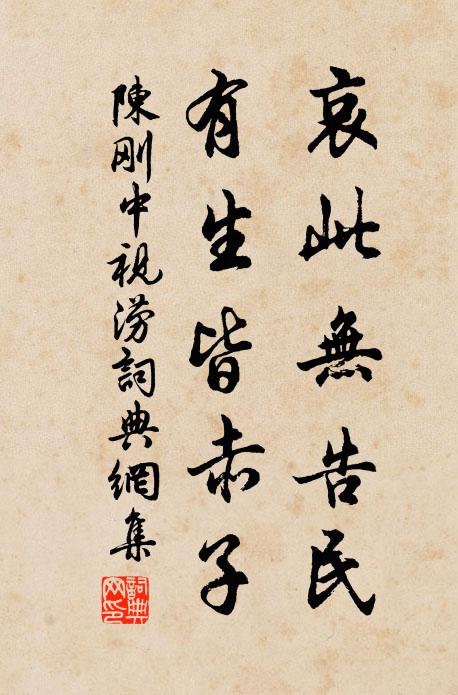 哀此無告民
有生皆赤子
陳剛中視澇詞典網集
詞典
网印